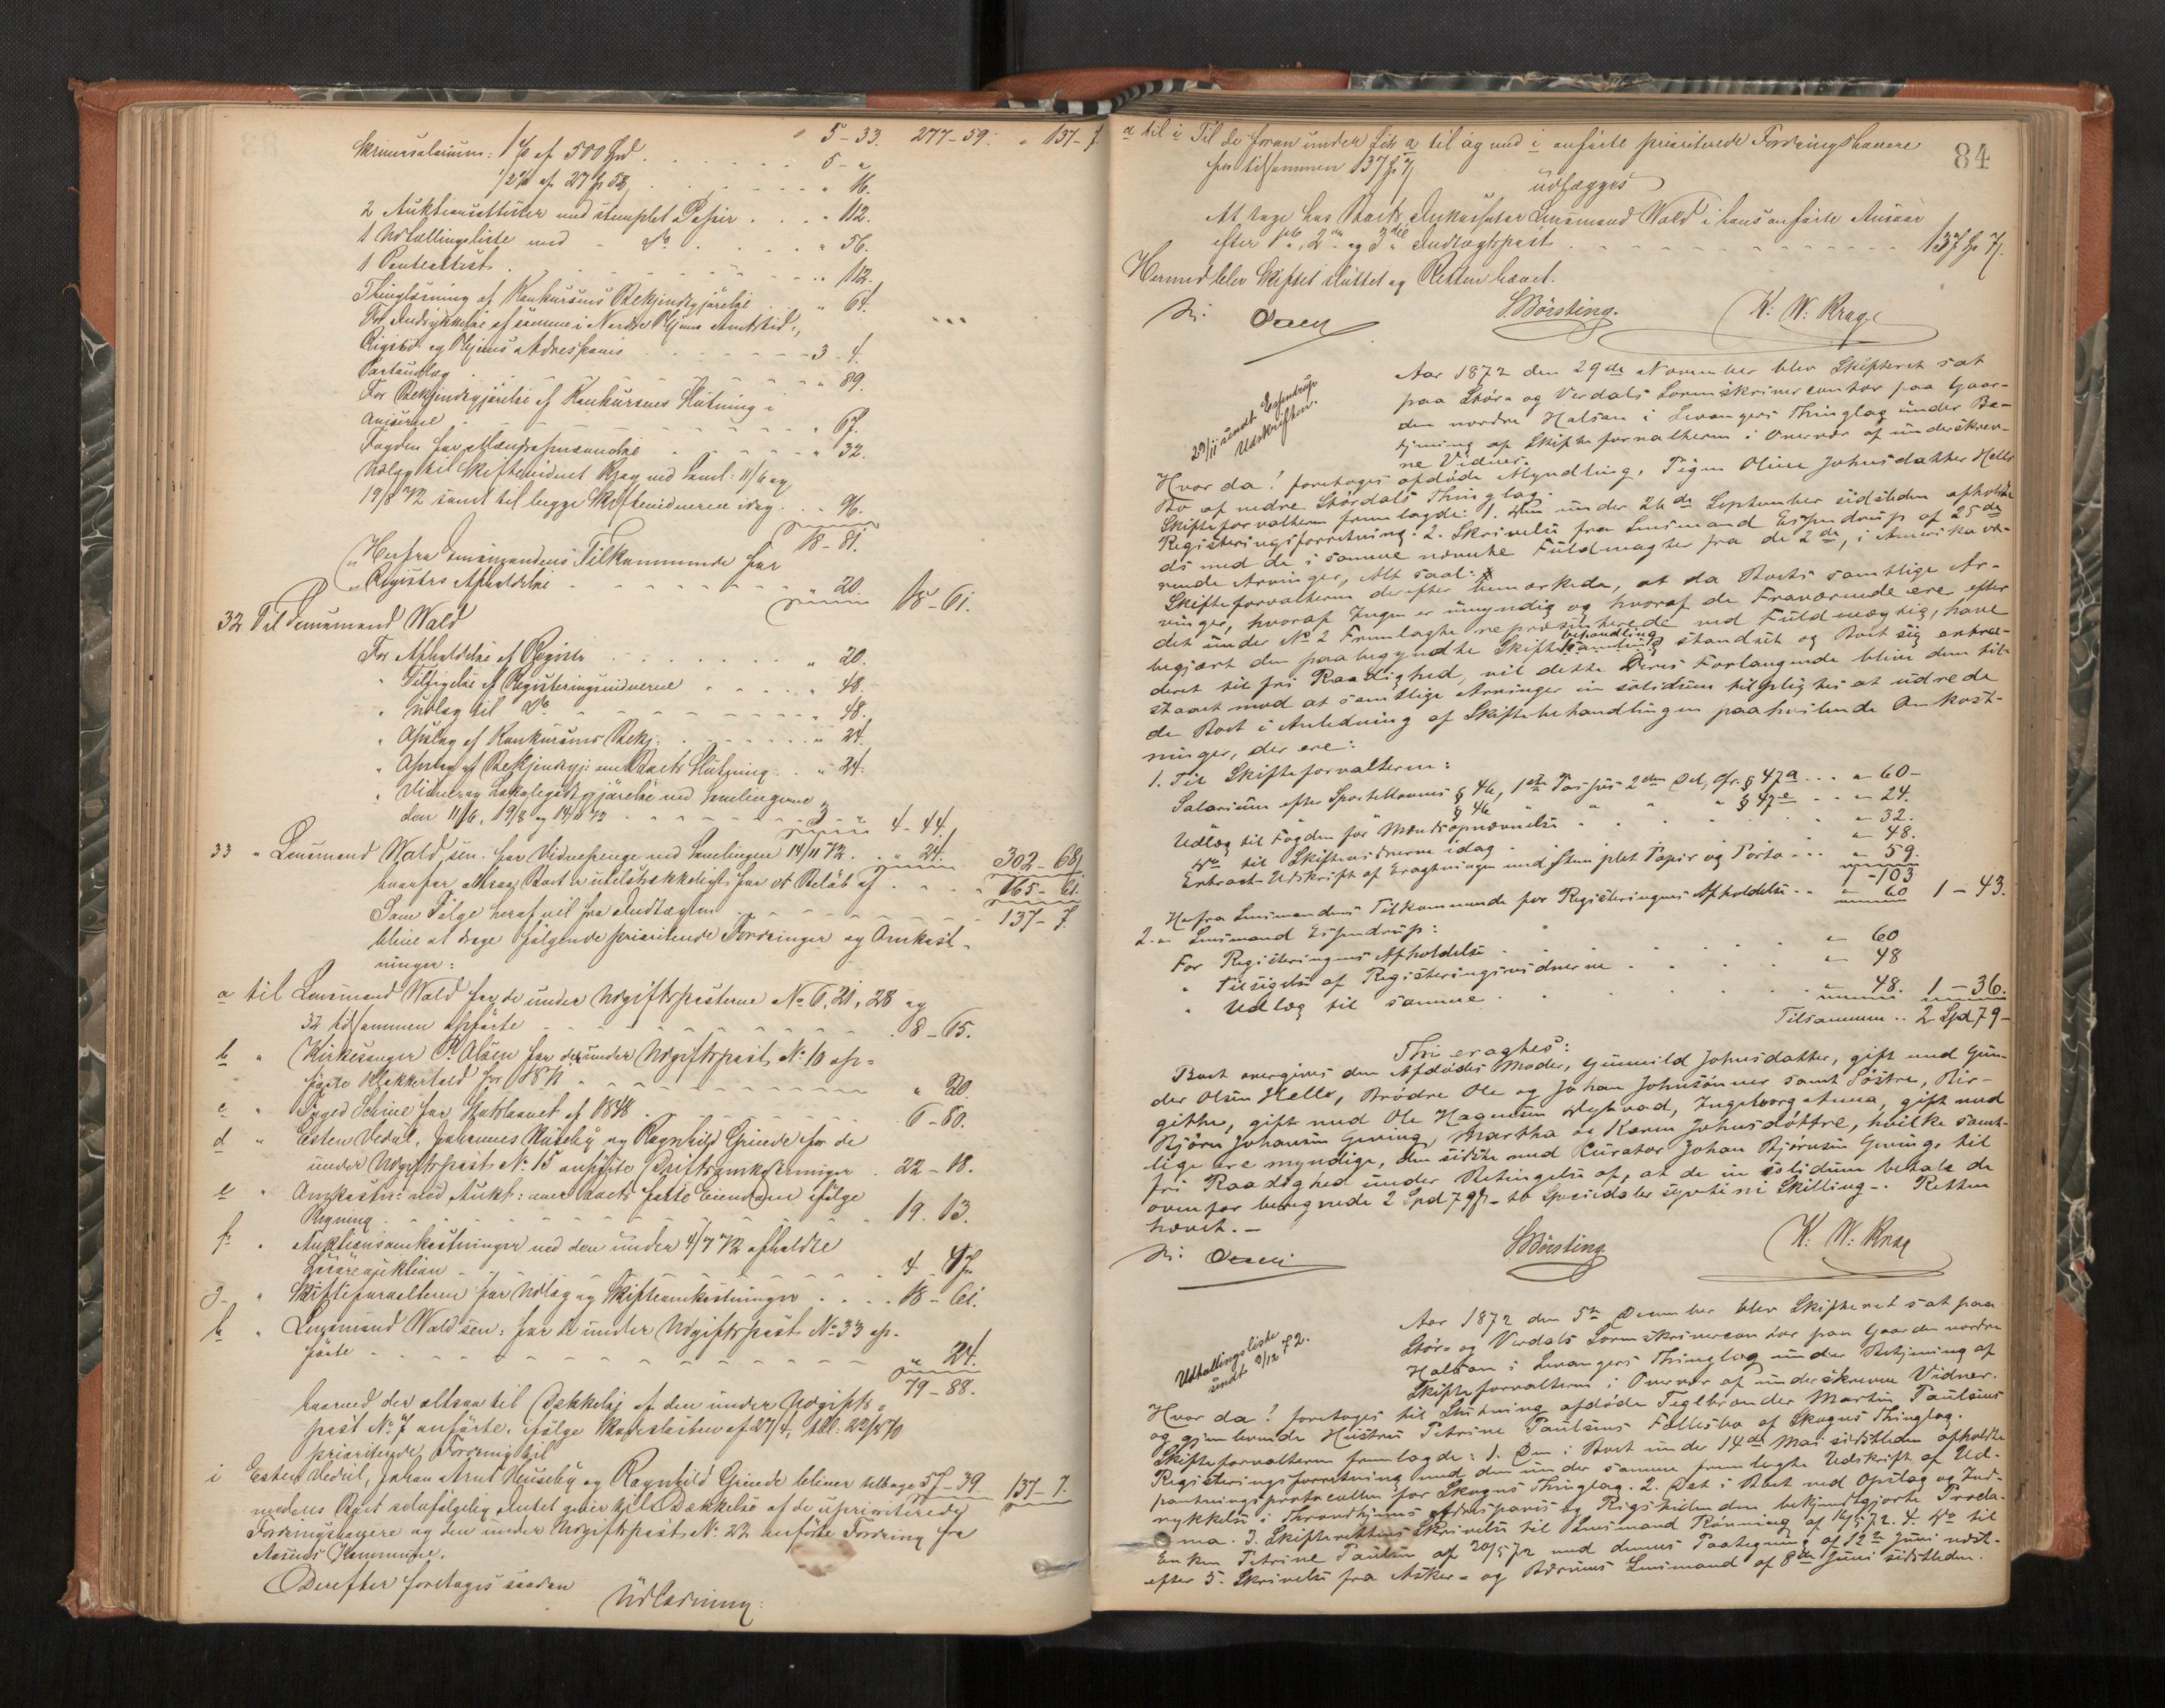 " 5-33. 277-59. " 137-7.
Skriversalarium: 1 % af 500 Spd . . . . . 5 - "
1/2 % af 27 Spd 58, . . . . . " 16.
2 Auktionsattester med stemplet Papir . . . " 112.
1 Udlællingsliste med " do . . . . " 56.
1 Panteattest . . . . . " 112.
Thinglæsning af Konkursens Bekjendtgjørelse . . " 64.
For Indrykkelse af samme i Nordre Thjems Amtstid.,
Rigstid. og Thjems Adressavis . . . . 3-4.
Portoudlæg . . . . . " 89.
For Bekjendtgjørelse af Konkursens Slutning i
Aviserne . . . . . " 67.
Fogden for Mændsopnævnelse . . . . " 32.
Udlæg til Skiftevidnet Krag ved Saml: 11/6 og
19/8 72 samt til begge Skiftevidnerne idag . . " 96.
18-81.
Herfra Lensmandens Tilkommende for
Registrs Afholdelse . . . . . " 20. 18-61.
32 Til Lensmand Wald
For Afholdelse af Registr . . . . " 20.
" Tilsigelse af Registeringsvidnerne . . . . " 48.
" Udlæg til do . . . . " 48.
" Opslag af Konkursens Bekj: . . . . " 24.
" Opslag af Bekjendtgj: om Boets Slutning . . " 24.
" Vidne og Lokalegodtgjørelse ved Samlingerne
den 11/6, 19/8 og 14/11 72 . . . . 3 " 4-44.
33 " Lensmand Wald sen. for Vidnepenge ved Samlingen 14/11 72 . . " 24. 302-68
hvorfor altsaa Boet er utilstrækkeligt for et Beløb af . . . . 165-61.
Som Følge heraf vil fra Indtægten . . . . 137-7.
blive at drage følgende prioriterede Fordringer og Omkost-
ninger:
a til Lensmand Wald for de under Udgiftsposterne No 6, 21, 28 og
32 tilsammen opførte . . . . . 8-65.
b " Kirkesanger P. Olsen for det under Udgiftspost No 10 op-
førte Klokkertold for 1871 . . . . " 20.
c " Foged Schive for Skatskravet af 1848 . . . . 6-80.
d " Esten Vedul, Johannes Huseby og Ragnhild Grinde for de
under Udgiftspost No 15 anførte Driftsomkostninger . 22-18.
e " Omkostn: ved Aukt: over Boets faste Eiendom ifølge
Regning . . . . . 19. 13.
f " Auktionsomkostninger ved den under 4/7 72 afholdte
Løsøreauktion . . . . . 4-47
g " Skifteforvalteren for Udlæg og Skifteomkostninger . . . . 18-61.
h " Lensmand Wald sen: for de under Udgiftspost No 33 op-
førte . . . . . " 24.
79-88.
hvormed der altsaa til Dækkelse af den under Udgifts-
post No 7 anførte, ifølge Skadesløsbrev af 27/4, tbl: 22/8 70
prioriterede Fordring til
i Esten Vedul, Johan Arnt Huseby og Ragnhild Grinde bliver tilbage 57-39. 137-7.
medens Boet selvfølgelig intet giver til Dækkelse af de uprioriterede
Fordringshavere og den under Udgiftspost No 22 anførte Fordring fra
Aasens Kommune.
Derefter foretoges saadan
Udlodning:
84
a til i Til de foran under Litr a til og med i anførte prioriterede Fordringshavere
for tilsammen 137 Spd 7 ß
udlægges
At tage hos Boets Inkassator Lensmand Wald i hans anførte Ansvar
efter 1ste, 2den og 3die Indtægtspost . . . . 137 Sp 7.
Hermed blev Skiftet sluttet og Retten hævet.
SBørsting. K: W: Krag.
29/11 sendt Espendrup
Udskriften.
Aar 1872 den 29de November blev Skifteret sat
paa Stør- og Værdals Sorenskrivercontor paa Gaar-
den nordre Halsan i Levangers Thinglag under Be-
tjening af Skifteforvalteren i Overvær af underskrev-
ne Vidner.
Hvor da! foretoges afdøde Myndling, Pigen Oline Johnsdatter Hells
Bo af nedre Størdals Thinglag.
Skifteforvalteren fremlagde: 1. Den under 26de September sidstleden afholdte
Registeringsforretning. 2. Skrivelse fra Lensmand Espendrup af 25de
ds med de i samme nævnte Fuldmagter fra de 2de, i Amerika væ-
rende Arvinger, Alt saal:
Skifteforvalteren derefter bemærkede, at da Boets samtlige Ar-
vinger, hvoraf Ingen er umyndig og hvoraf de Fraværende ere efter
det under No 2 Fremlagte repræsenterede ved Fuldmægtig, have
begjært den paabegyndte Skiftebehandling standset og Boet sig extra-
deret til fri Raadighed, vil dette Deres Forlangende blive dem til-
staaet mod at samtlige Arvinger in solidum tilpligtes at udrede
de Boet i Anledning af Skiftebehandlingen paahvilende Omkost-
ninger, der ere:
1. Til Skifteforvalteren:
Salarium efter Sportellovens § 46, 1ste Passus 2den Del, cfr. § 47a . . . " 60-
" " § 46 " " § 47e . . " 24.
Udlæg til Fogden for Mændsopnævnelse . . . . " 32.
do til Skiftevidnerne idag . . . . " 48.
Extract-Udskrift af Eragtningen med Stemplet Papir og Porto . . . " 59.
1-103
Herfra Lensmandens Tilkommende for Registeringens Afholdelse . . " 60 1-43.
2. " Lensmand Espendrup:
For Registeringens Afholdelse . . . . " 60
" Tilsigelse af Registeringsvidnerne . . . . " 48
" Udlæg til samme . . . . " 48. 1-36.
Tilsammen . . 2 Spd 79-
Thi eragtes:
Boet overgives den Afdødes Moder, Gunnild Johnsdatter, gift med Gun-
der Olsen Hells, Brødre Ole og Johan Johnsønner samt Søstre, Bir-
gitte, gift med Ole Hagensen Nykvad, Ingeborganna, gift med
Bjørn Johansen Gjeving, Martha og Karen Johnsdøttre, hvilke samt-
lige ere myndige, den sidste med Curator Johan Bjørnsen Gjeving, til
fri Raadighed under Betingelse af, at de in solidum betale de
ovenfor beregnede 2 Spd 79 ß - to Speciedaler sytti ni Skilling -. Retten
hævet. -
SBørsting. K: W: Krag
Udtællingsliste
sendt 9/12 72.
Aar 1872 den 5te December blev Skifteret sat paa
Stør- og Værdals Sorenskrivercontor paa Gaarden nordre
Halsan i Levangers Thinglag under Betjening af
Skifteforvalteren i Overvær af underskrevne Vidner.
Hvor da! foretoges til Slutning afdøde Teglbrænder Martin Paulsens
og gjenlevende Hustru Petrine Paulsens Fællesbo af Skogns Thinglag.
Skifteforvalteren fremlagde: 1. Den i Boet under 14de Mai sidstleden afholdte
Registeringsforretning med den under samme fremlagte Udskrift af Ud-
pantningsprotocollen for Skogns Thinglag. 2. Det i Boet ved Opslag og Ind-
rykkelse i Throndhjems Adresseavis og Rigstidenden bekjendtgjorte Procla-
ma. 3. Skifterettens Skrivelse til Lensmand Rønning af 16/5 72. 4. do til
Enken Petrine Paulsen af 20/5 72 med dennes Paategning af 12te Juni næst-
efter 5. Skrivelse fra Asker- og Bærums Lensmand af 8de Juni sidstleden.